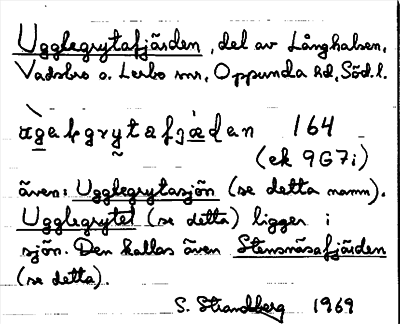 Ugglegrytafjärden, del av Långhalsen,
Vadsbro o. Lerbo snr, Oppunda hd, Söd.l.
ùgəlɐgryta fjæ̀ḍan 164
(ek 9G7i)
även: Ugglegrytasjön (se detta namn).
Ugglegrytet (se detta) ligger i
sjön. Den kallas även Stensnäsafjärden
(se detta).
S. Strandberg 1969